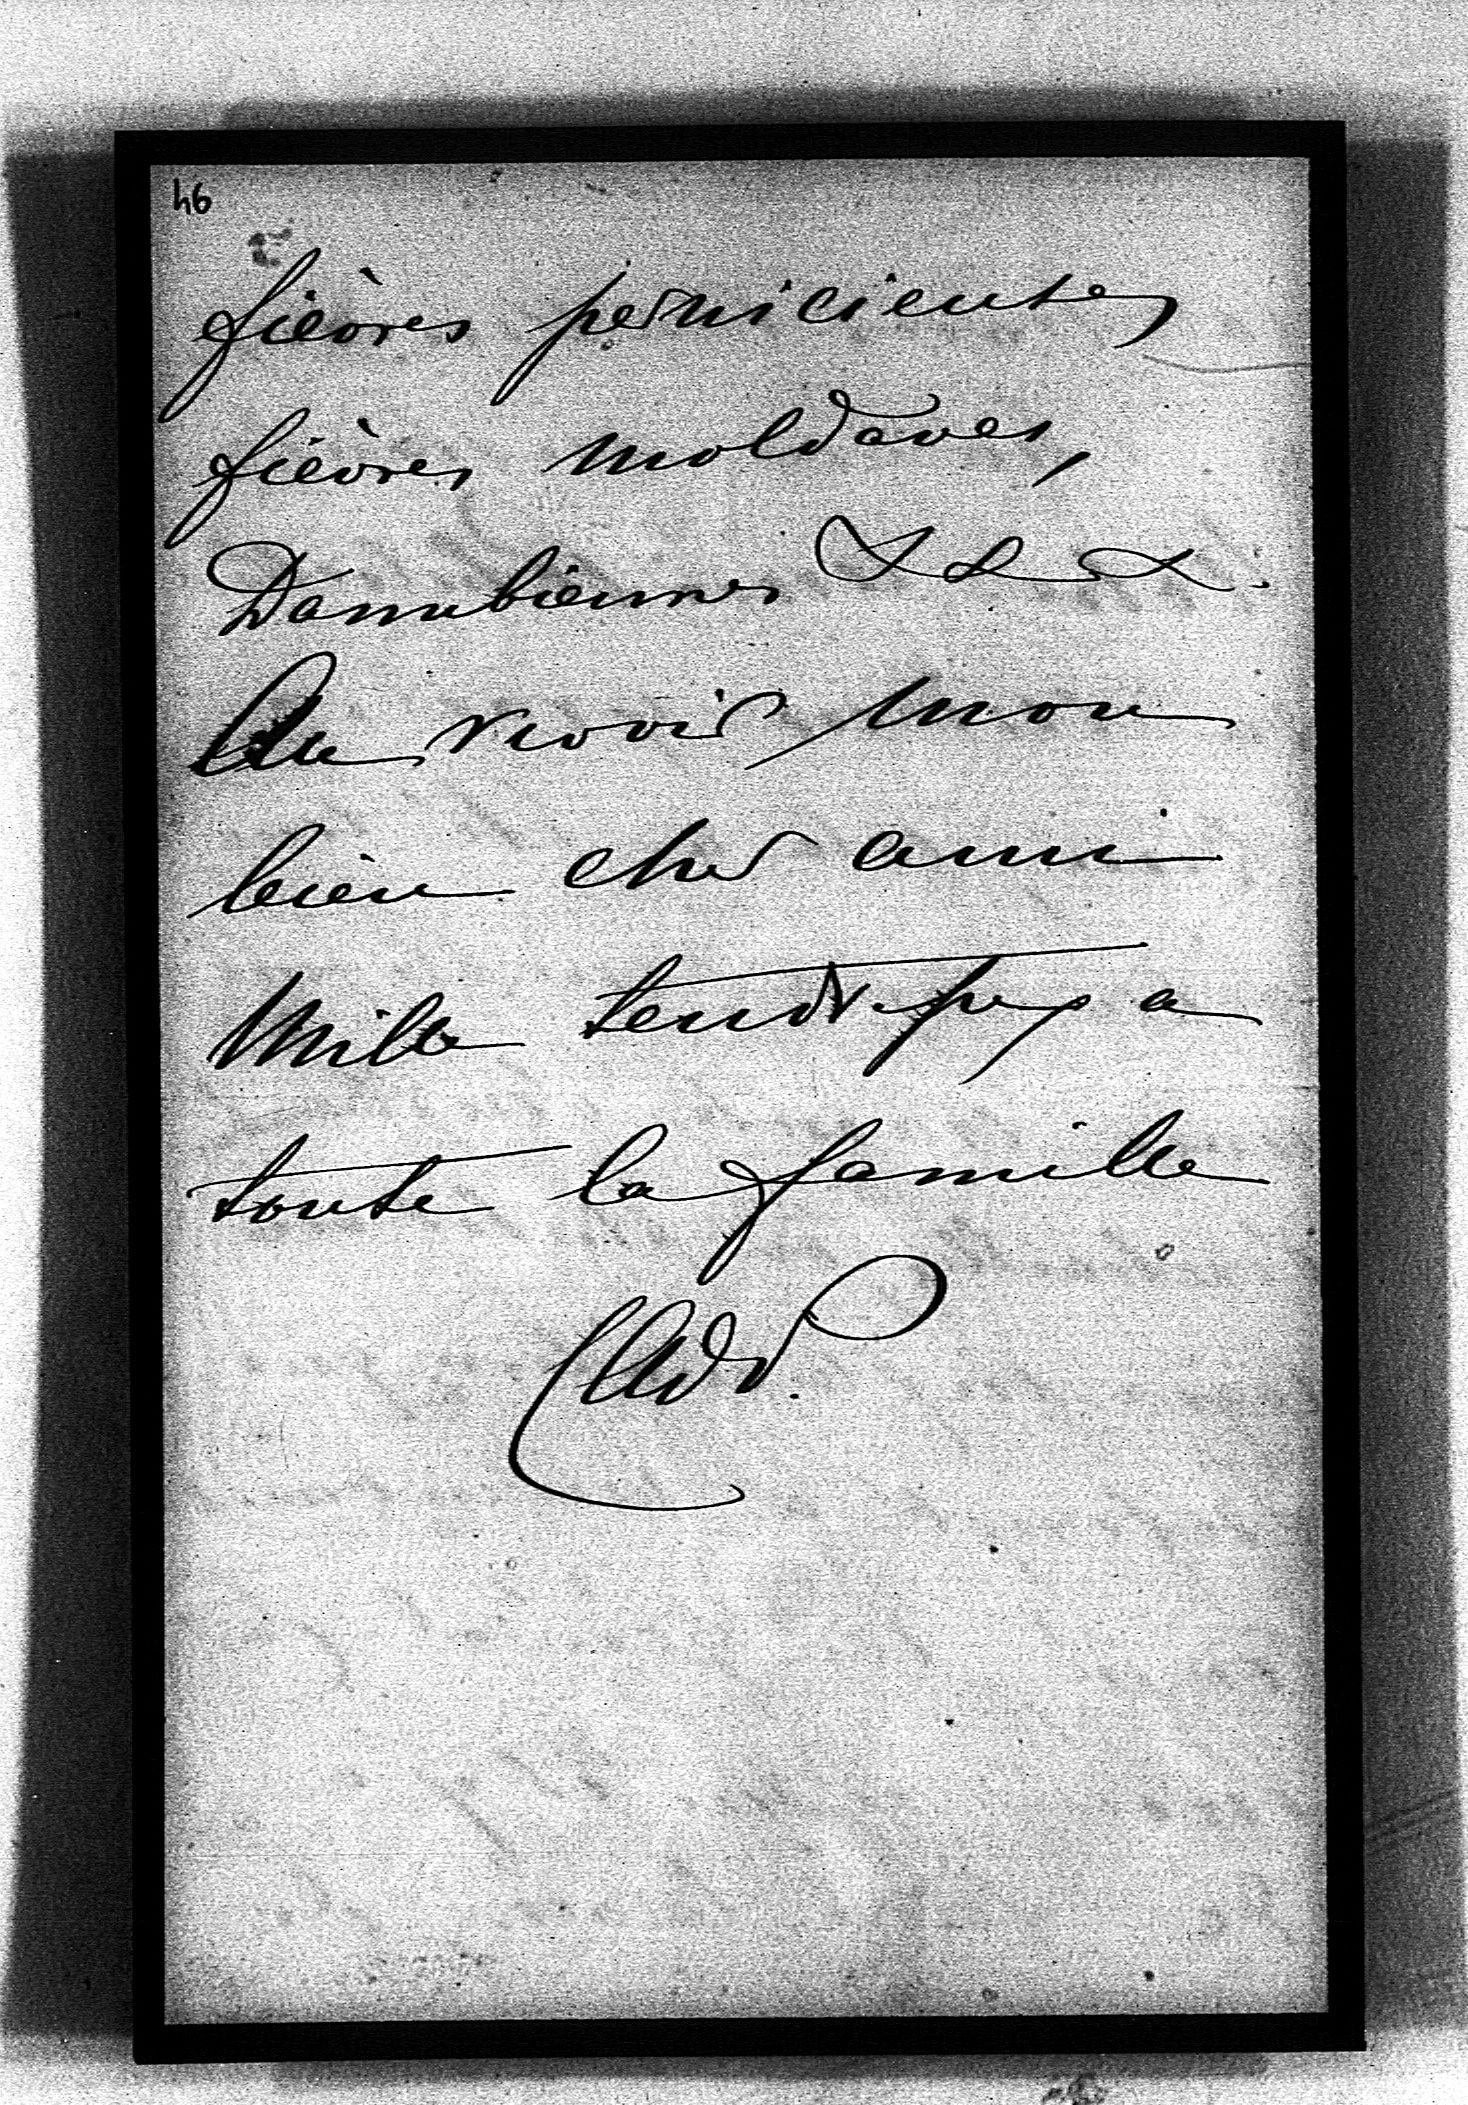 46
fièvres pernicieuses
fièvres moldaves,
Danubiennes &&&.
Au revoir mon
bien cher ami
Mille tendresses a
toute la famille